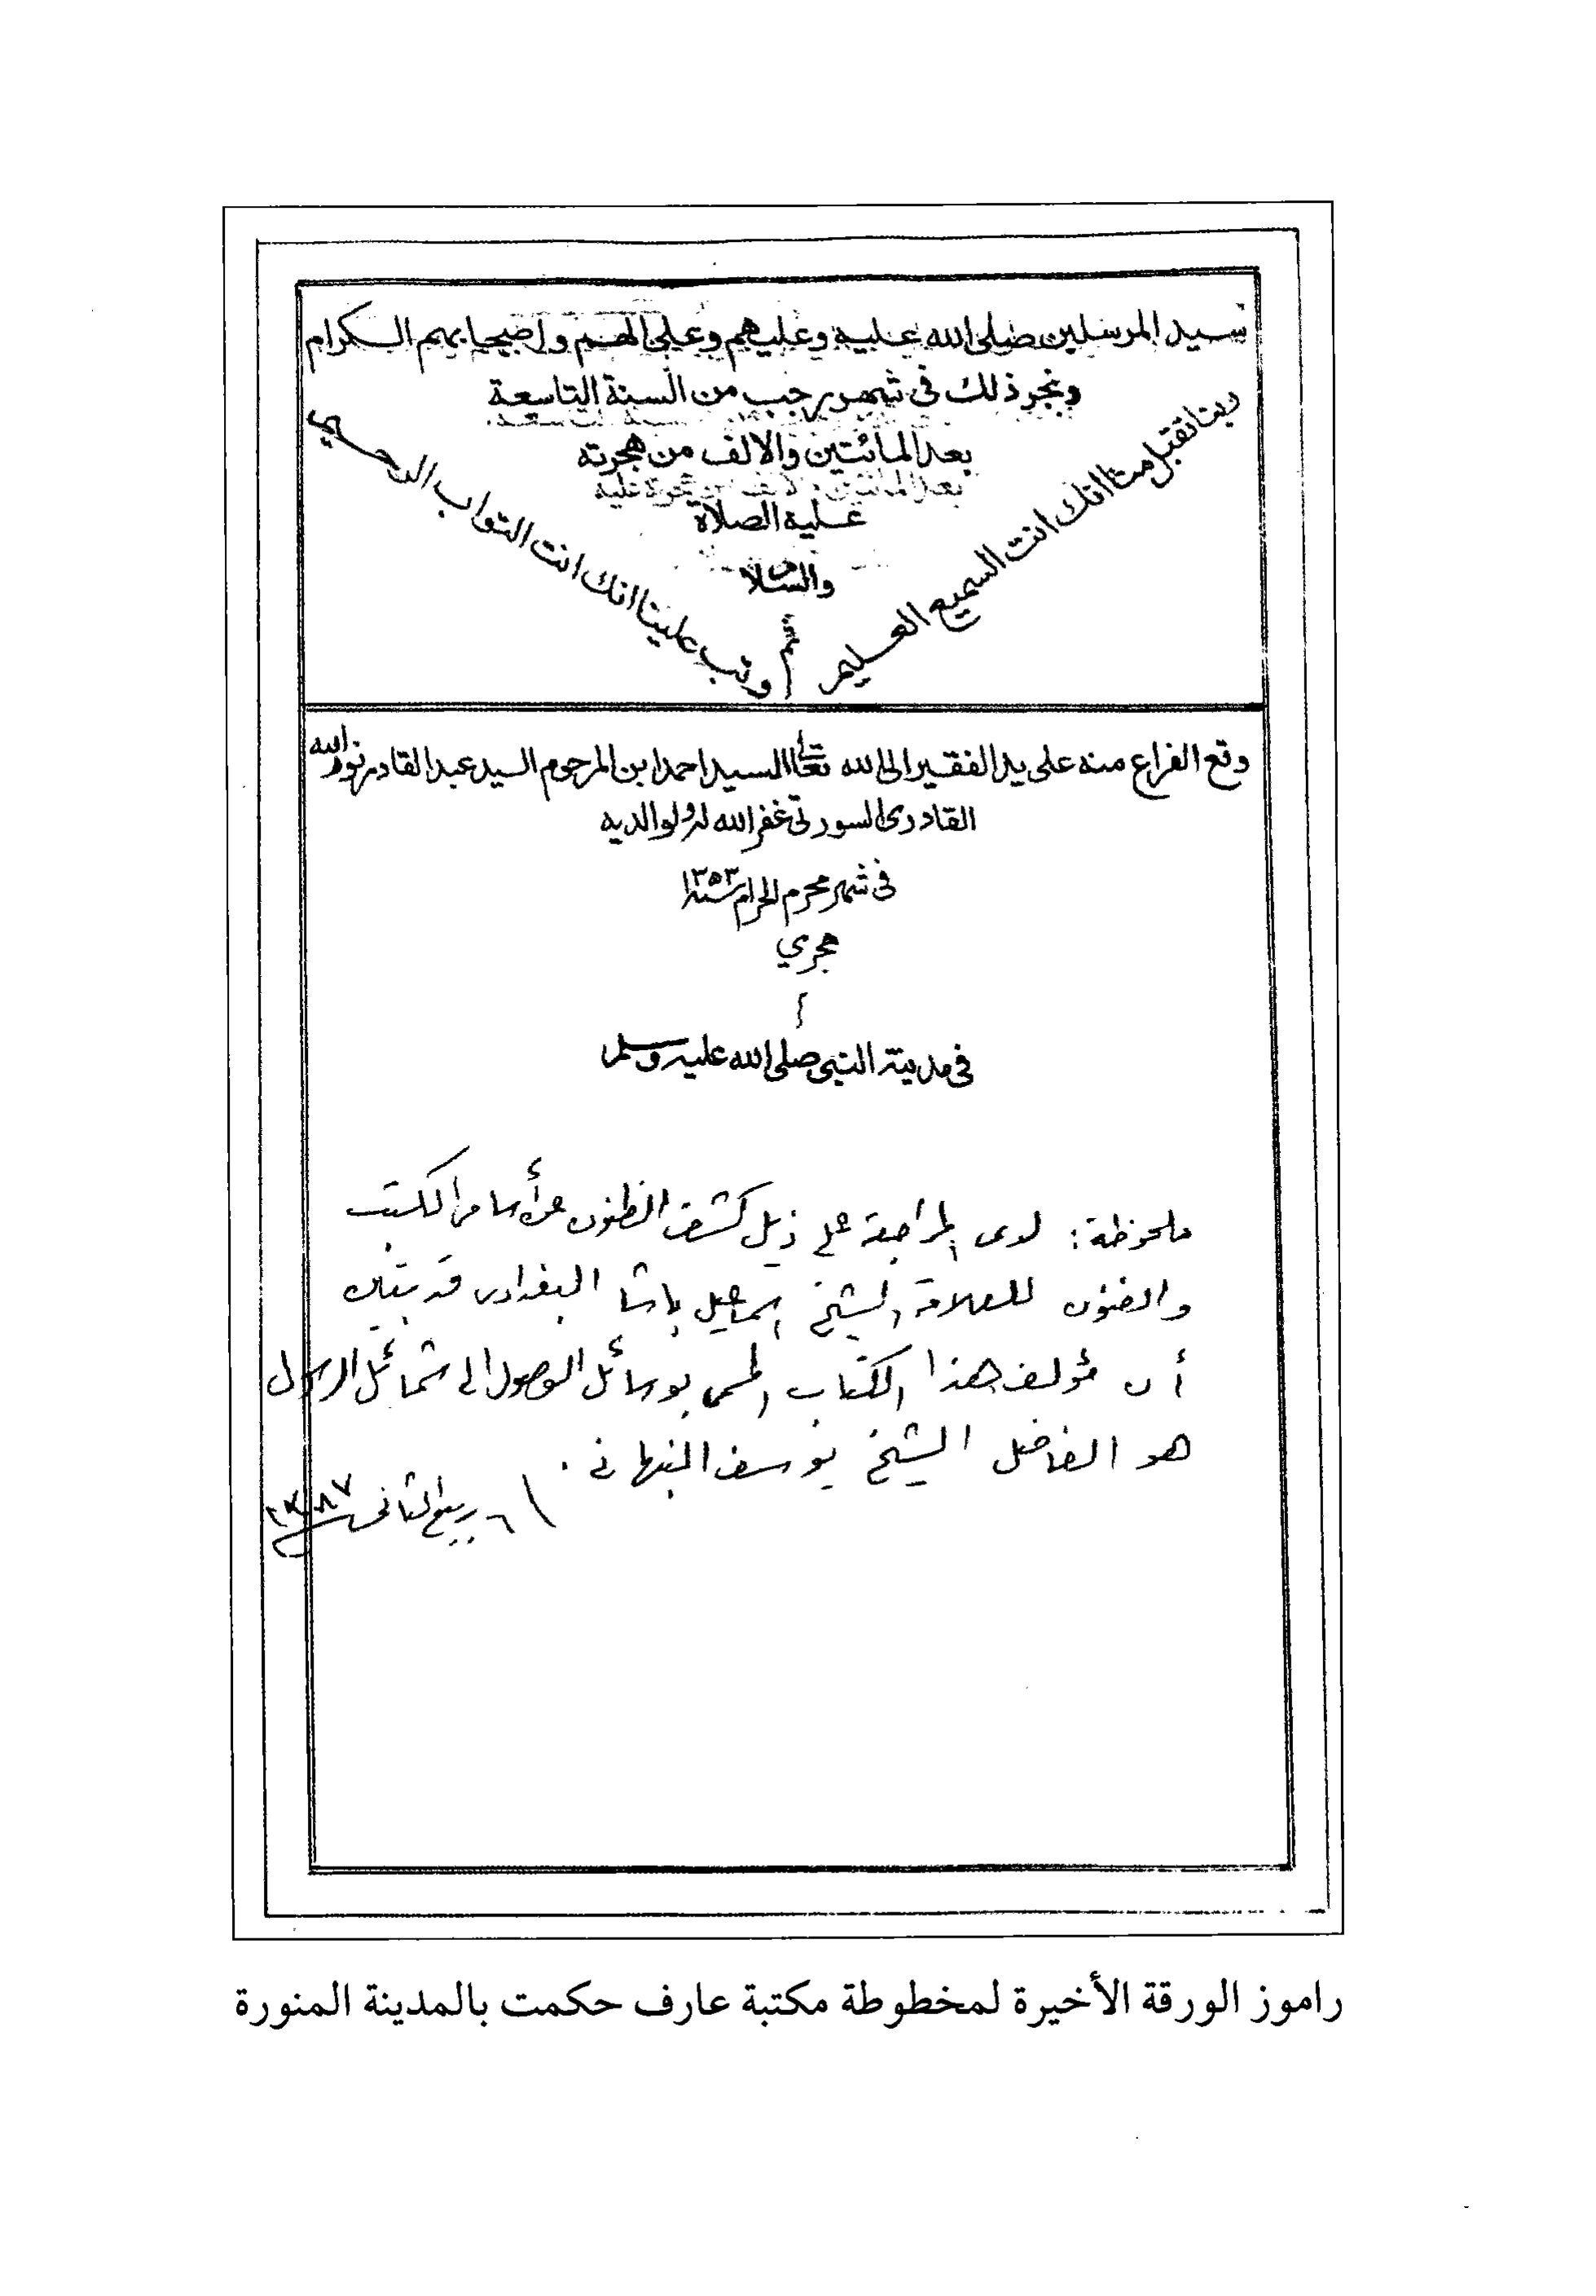 سيد المرسلين صلى الله عليه وعليهم وعلى الهم واصحابهم الكرام
ونجز ذلك فى شهر رجب من السنة التاسعة
بعد المائتين والالف من هجرته
عليه الصلاة
والسلام
ربنا تقبل منا انك انت السميع العليم
وتب علينا انك انت التواب الرحيم
وقع الفراغ منه على يد الفقير الى الله تعالى السيد احمد ابن المرحوم السيد عبد القادر نور الله
القادرى السورتى غفر الله له ولوالديه
فى شهر محرم الحرام سنة ١٣٥٣
هجري
فى مدينة النبى صلى الله عليه وسلم
ملحوظة: لدى المراجعة على ذيل كشف الظنون عن أسامى الكتب
والفنون للعلامة الشيخ اسماعيل باشا البغدادى قد تبين
أن مؤلف هذا الكتاب المسمى بوسائل الوصول الى شمائل الرسول
هو الفاضل الشيخ يوسف النبهانى .
٦ ربيع الثانى
راموز الورقة الأخيرة لمخطوطة مكتبة عارف حكمت بالمدينة المنورة